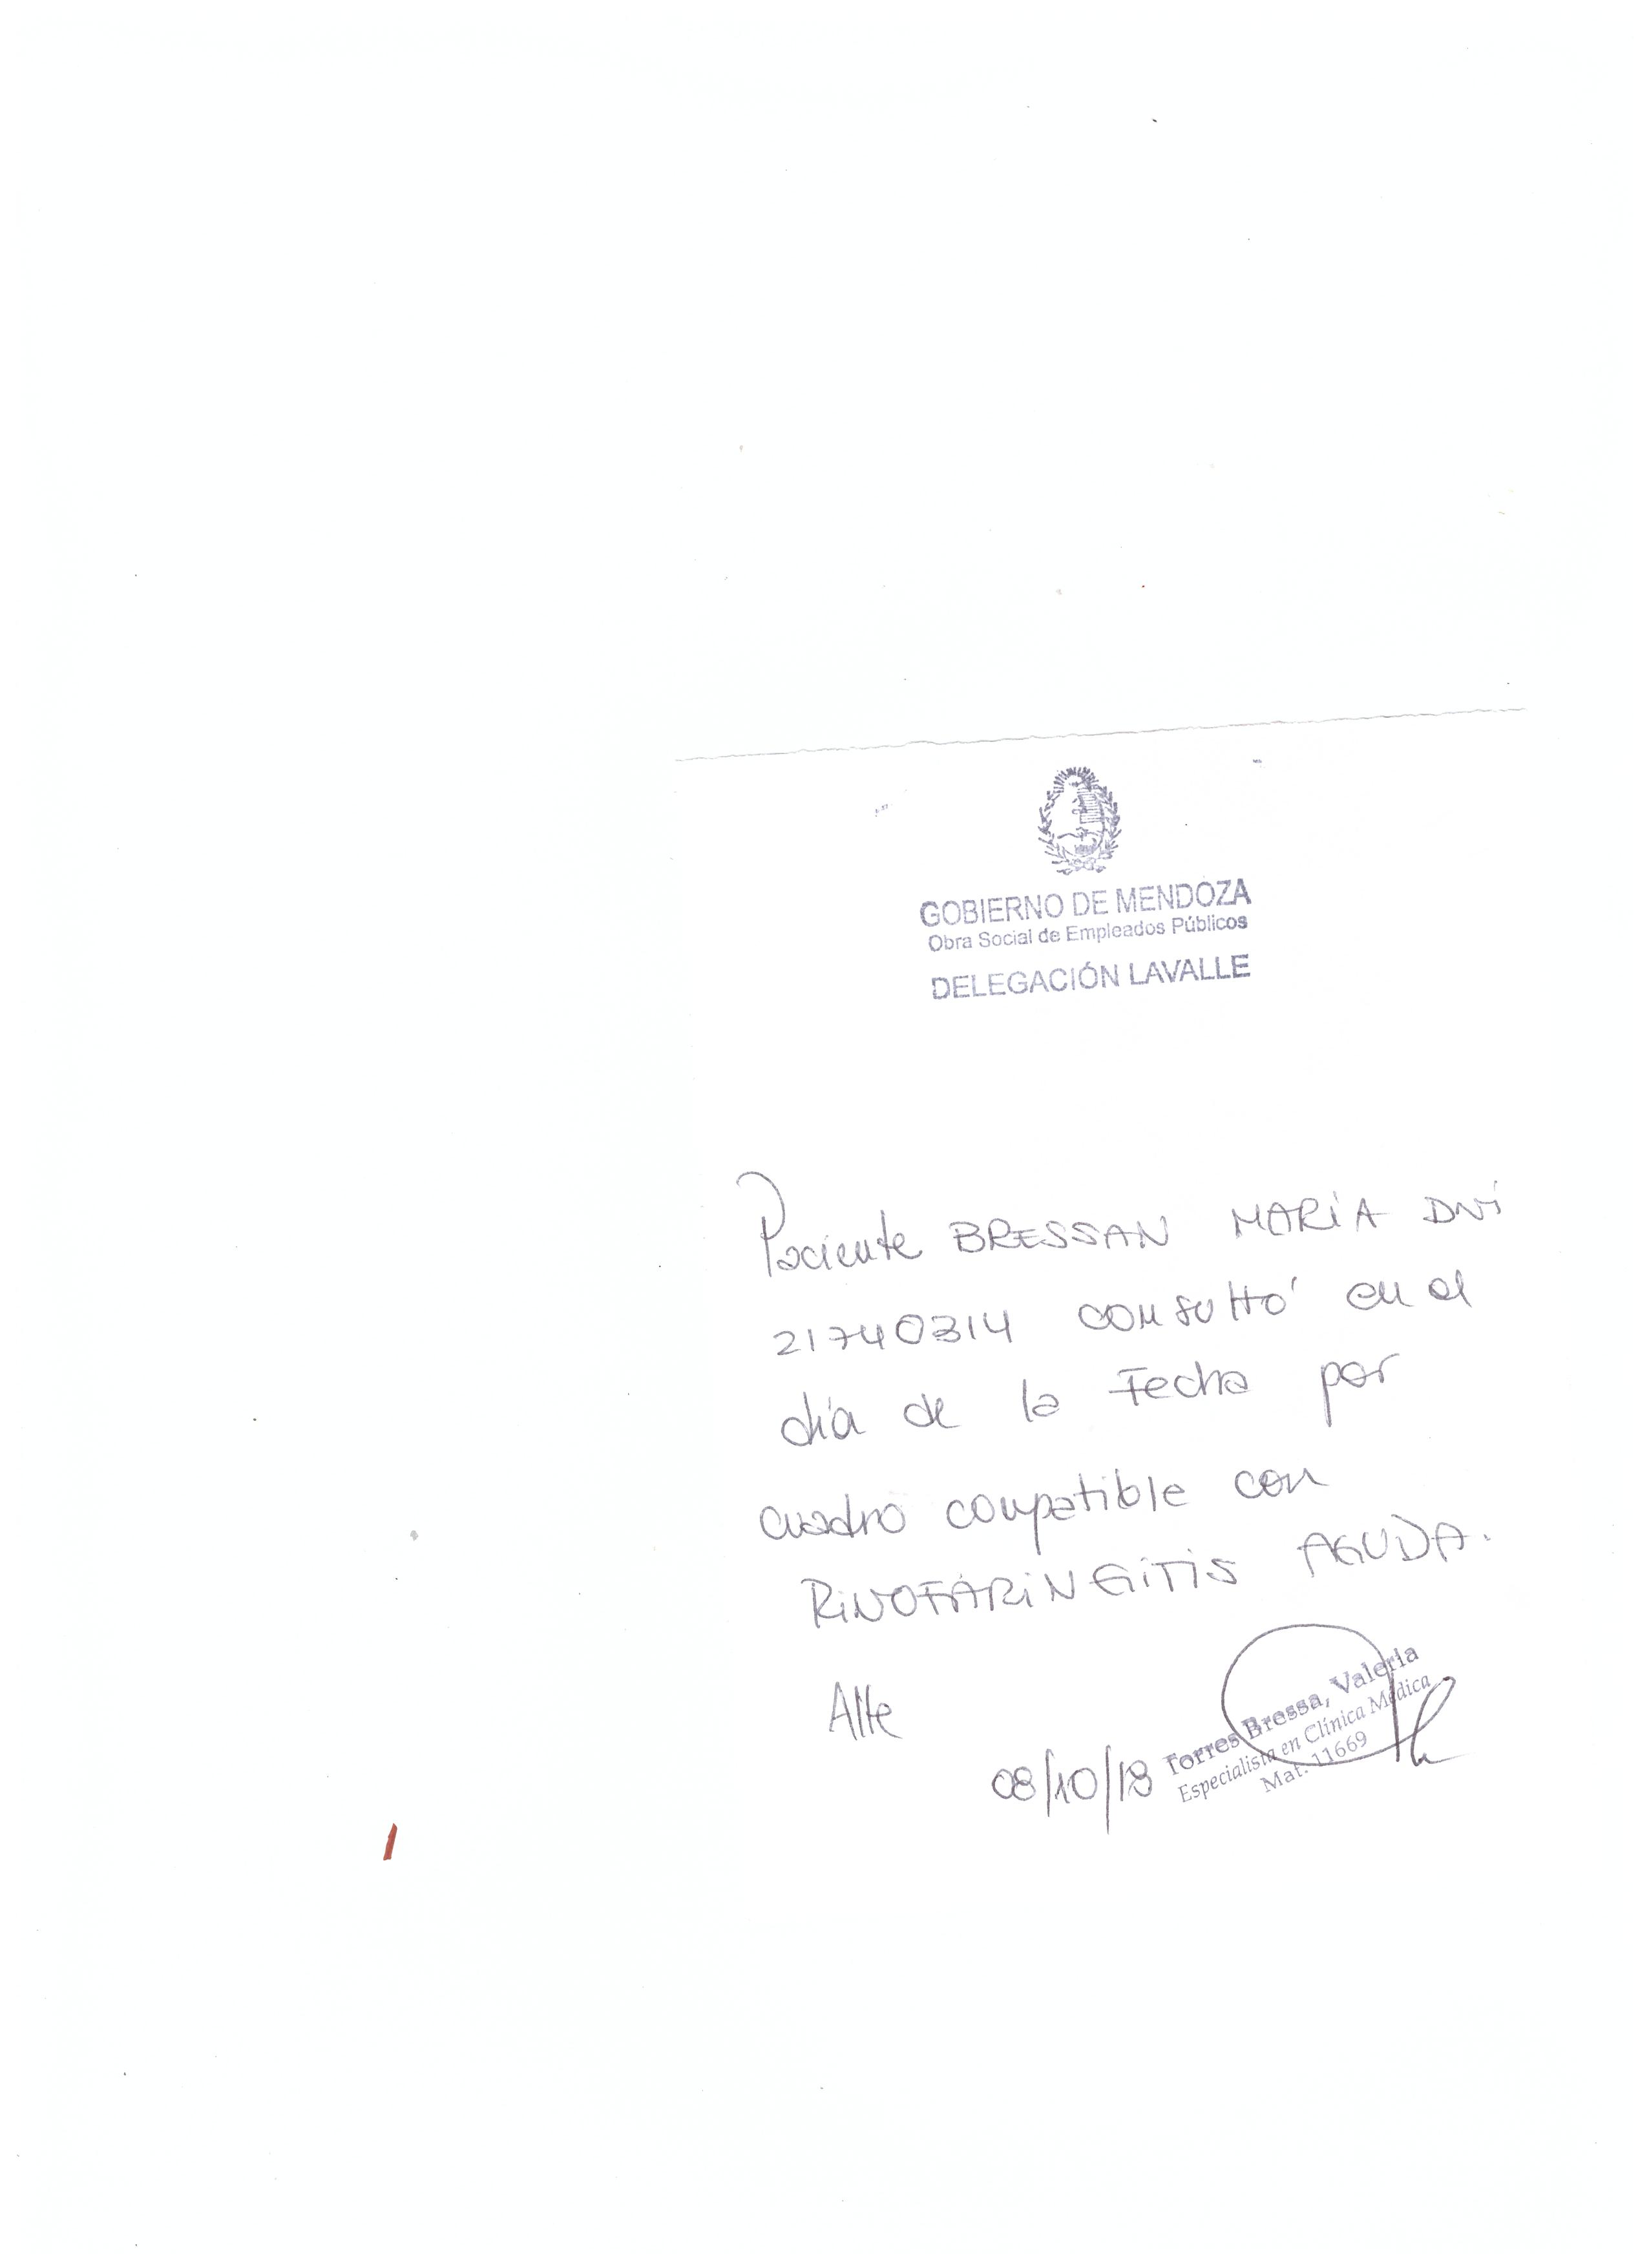 GOBIERNO DE MENDOZA
Obra Social de Empleados Públicos
DELEGACIÓN LAVALLE
Paciente BRESSAN MARIA DNI
21740314 consultó en el
día de la Fecha por
cuadro compatible con
RINOFARINGITIS AGUDA.
Atte
08/10/18
Torres Bressa, Valeria
Especialista en Clínica Médica
Mat. 11669